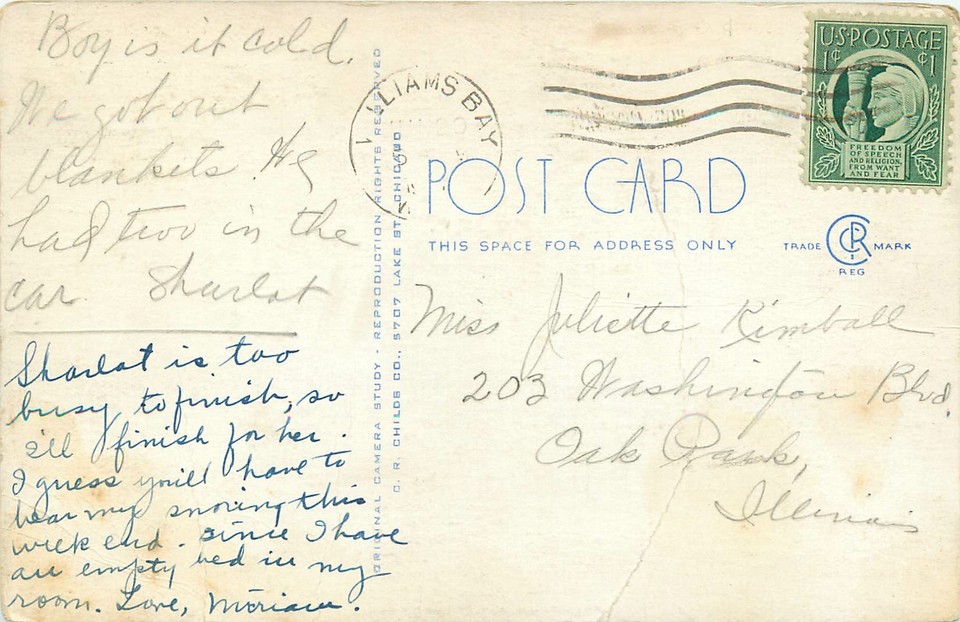 Boy is it cold.
We got out
blankets. We
had two in the
car. Sharlot
Sharlot is too
busy to finish, so
I'll finish for her.
I guess you'll have to
hear my snoring this
week end. since I have
an empty bed in my
room. Love, Miriam.
ORIGINAL CAMERA STUDY - REPRODUCTION RIGHTS RESERVED
C. R. CHILDS CO., 5707 LAKE ST., CHICAGO
LIAMS BAY
U.S. POSTAGE
1¢ ¢1
FREEDOM
OF SPEECH
AND RELIGION,
FROM WANT
AND FEAR
POST CARD
THIS SPACE FOR ADDRESS ONLY
TRADE CRC MARK
REG
Miss Juliette Kimball
203 Washington Blvd.
Oak Park,
Illinois